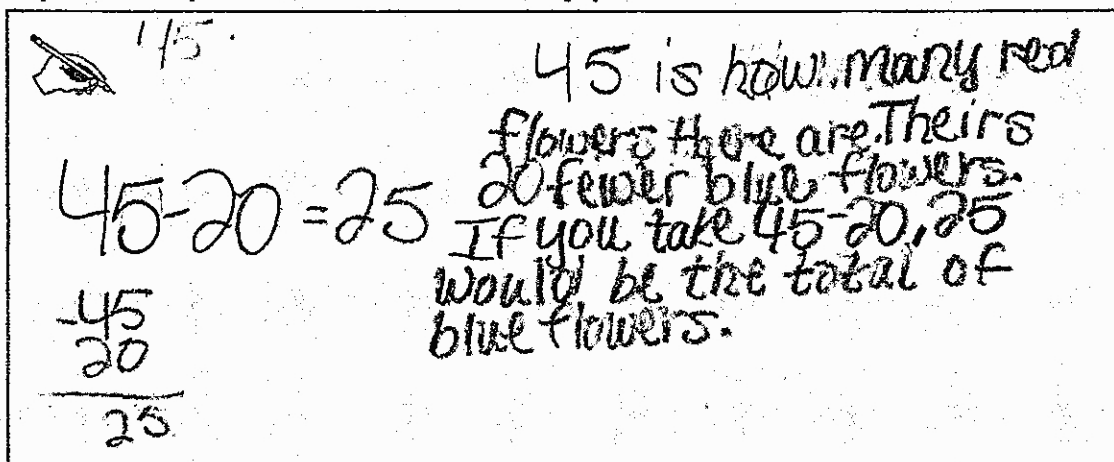 45.
45 is how many red
flowers there are. Theirs
20 fewer blue flowers.
If you take 45-20, 25
would be the total of
blue flowers.
45-20 = 25
-45
20
25